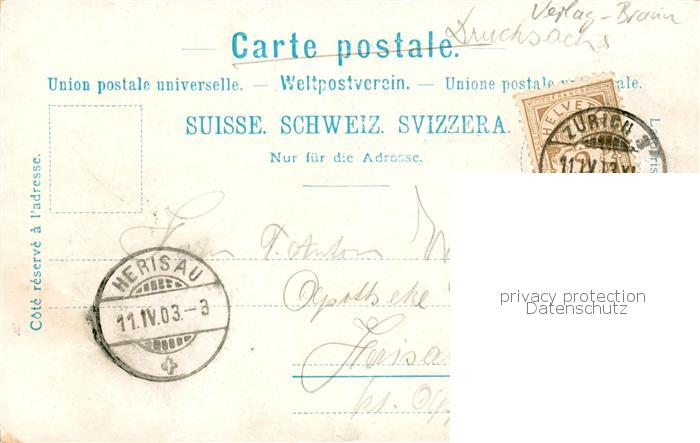 Verlag-Braun
Carte postale.
Drucksache
Union postale universelle. — Weltpostverein. — Unione postale
SUISSE. SCHWEIZ. SVIZZERA.
Nur für die Adresse.
Côté réservé à l'adresse.
FRANCO
HELVE
ZÜRICH
11.IV.03
HERISAU
11.IV.03.-3
Herrn
Apotheke
Herisa
privacy protection
Datenschutz